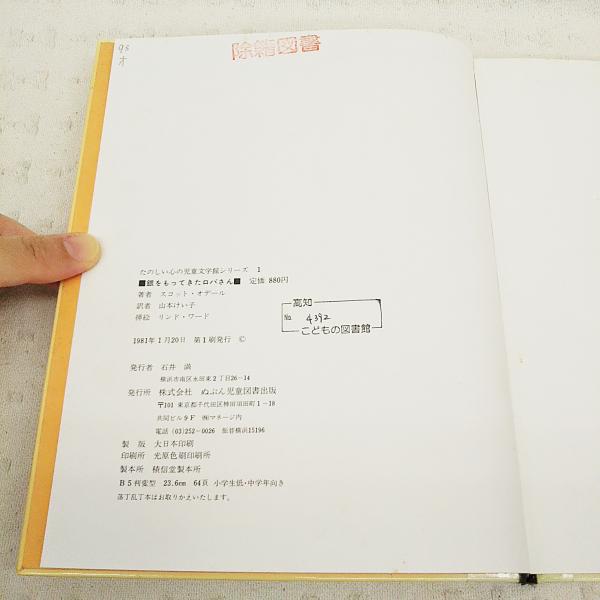 93
オ
除籍図書
たのしい心の児童文学館シリーズ 1
■銀をもってきたロバさん■ 定価 880円
著者 スコット・オデール
訳者 山本けい子
挿絵 リンド・ワード
高知
No. 4392
こどもの図書館
1981年1月20日 第1刷発行 ©
発行者 石井 満
横浜市南区永田東2丁目26-14
発行所 株式会社 ぬぷん児童図書出版
〒101 東京都千代田区神田須田町1-18
共同ビル9F ㈱マネージ内
電話 (03)252-0026 振替横浜15196
製 版 大日本印刷
印刷所 光原色刷印刷所
製本所 積信堂製本所
B5判変型 23.6cm 64頁 小学生低・中学年向き
落丁乱丁本はお取りかえいたします。